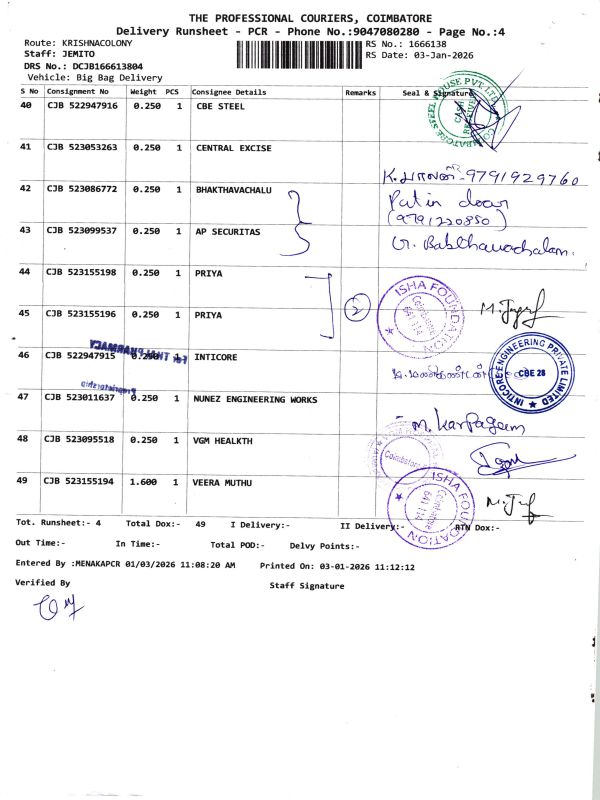 THE PROFESSIONAL COURIERS, COIMBATORE
Delivery Runsheet - PCR - Phone No.:9047080280 - Page No.:4
Route: KRISHNACOLONY
RS No.: 1666138
Staff: JEMITO
RS Date: 03-Jan-2026
DRS No.: DCJB166613804
Vehicle: Big Bag Delivery
S No Consignment No Weight PCS Consignee Details Remarks Seal & Signature
40 CJB 522947916 0.250 1 CBE STEEL
41 CJB 523053263 0.250 1 CENTRAL EXCISE
9791929760
42 CJB 523086772 0.250 1 BHAKTHAVACHALU
(9791220850)
43 CJB 523099537 0.250 1 AP SECURITAS
44 CJB 523155198 0.250 1 PRIYA
ISHA FOUNDATION
Coimbatore
641 114
2
45 CJB 523155196 0.250 1 PRIYA
46 CJB 522947915 0.250 1 INTICORE
INTICORE ENGINEERING PRIVATE LIMITED
CBE 28
47 CJB 523011637 0.250 1 NUNEZ ENGINEERING WORKS
M. Karpagam
48 CJB 523095518 0.250 1 VGM HEALKTH
Coimbatore
49 CJB 523155194 1.600 1 VEERA MUTHU
ISHA FOUNDATION
Coimbatore
641 114
Tot. Runsheet:- 4 Total Dox:- 49 I Delivery:- II Delivery:- RTN Dox:-
Out Time:- In Time:- Total POD:- Delvy Points:-
Entered By :MENAKAPCR 01/03/2026 11:08:20 AM Printed On: 03-01-2026 11:12:12
Verified By Staff Signature